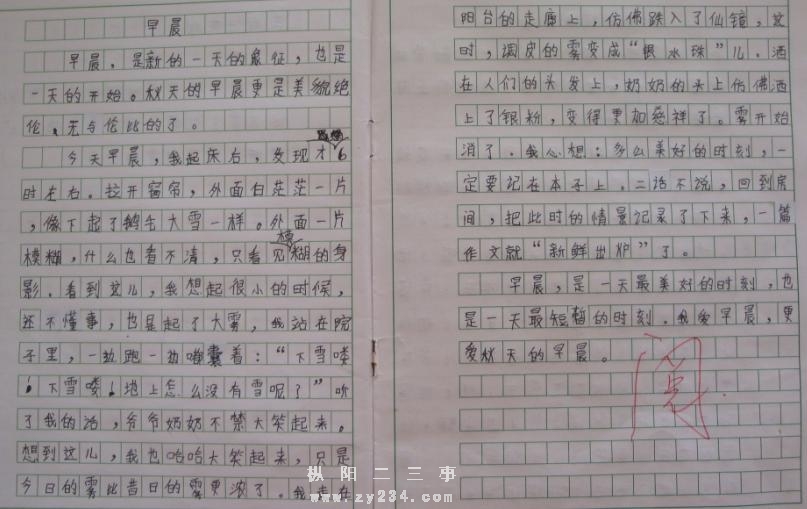 早晨
早晨，是新的一天的象征，也是
一天的开始。秋天的早晨更是美貌绝
伦、无与伦比的了。
今天早晨，我起床右，发现才6
时左右。拉开窗帘，外面白茫茫一片
，像下起了鹅毛大雪一样。外面一片
模糊，什么也看不清，只看见模糊的身
影。看到这儿，我想起很小的时候，
还不懂事，也是起了大雾，我站在院
子里，一边跑一边嚷着："下雪喽
！下雪喽！地上怎么没有雪呢？"听
了我的话，爷爷奶奶不禁大笑起来。
想到这儿，我也哈哈大笑起来，只是
今日的雾比昔日的雾更浓了。我走在
阳台的走廊上，仿佛跌入了仙镜，这
时，调皮的雾变成"银水珠"儿。洒
在人们的头发上，奶奶的头上仿佛洒
上了银粉，变得更加慈祥了。雾开始
消了。我心想：多么美好的时刻，一
定要记在本子上。二话不说，回到房
间，把此时的情景记录了下来，一篇
作文就"新鲜出炉"了。
早晨，是一天最美好的时刻，也
是一天最短暂的时刻。我爱早晨，更
爱秋天的早晨。
枞阳二三事
www.zy234.com